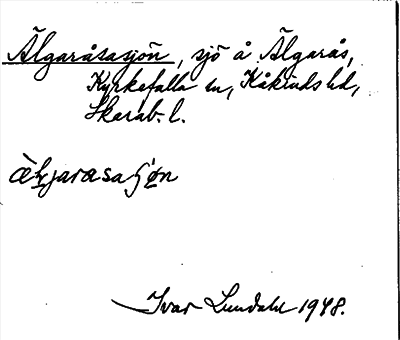 Älgaråsasjön, sjö å Älgarås,
Kyrkefalla sn, Kåkinds hd,
Skarab. l.
Ivar Lundahl 1948.